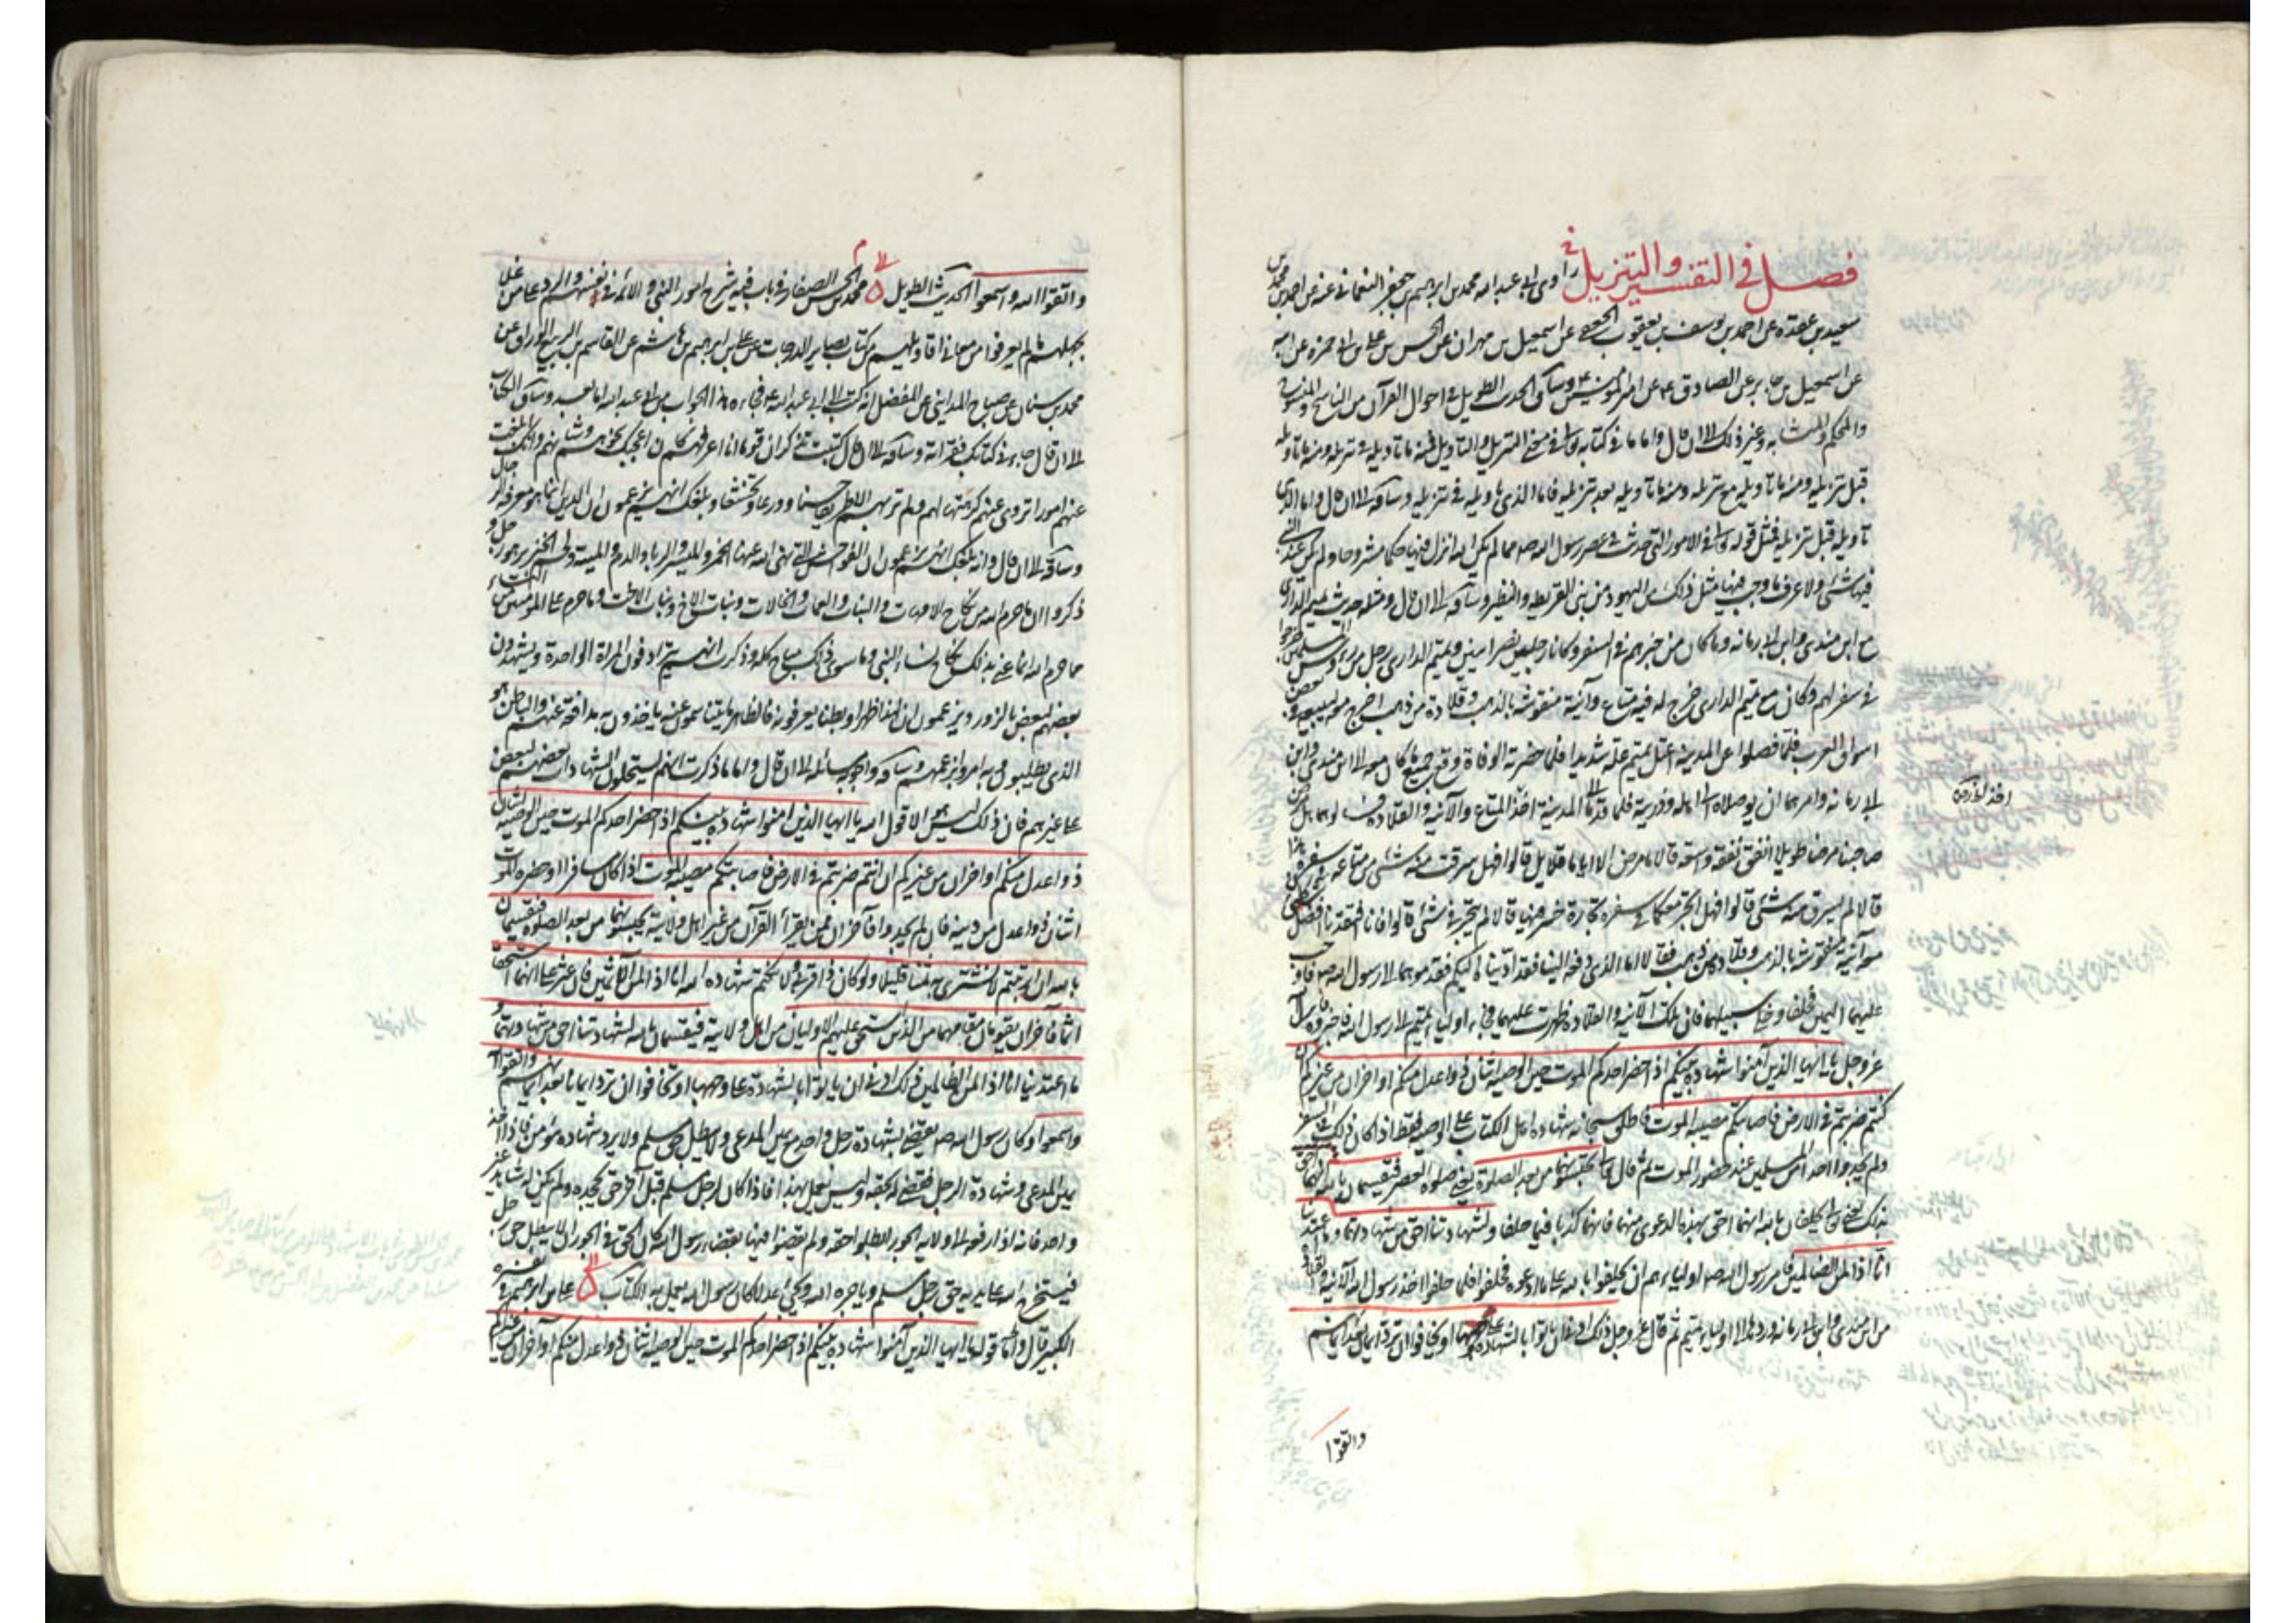 فصل في التفسير والتنزيل روى أبي عبد الله محمد بن ابرهيم بن جعفر النعماني عنه عن احمد بن محمد بن
سعيد بن عقده عن احمد بن يوسف بن يعقوب الجعفي عن اسمعيل بن مهران عن الحسن بن علي بن ابي حمزه عن ابيه
عن اسمعيل بن جابر عن الصادق ع عن امير المؤمنين وساق الحديث الطويل في احوال القرآن من الناسخ والمنسوخ
والمحكم والمتشابه وغير ذلك الى ان قال واما ما في كتابه تعالى في معنى التنزيل والتاويل فمنه ما تاويله في تنزيله ومنه ما تاويله
قبل تنزيله ومنه ما تاويله مع تنزيله ومنه ما تاويله بعد تنزيله فاما الذي تاويله في تنزيله وساقه الى ان قال واما الذي
تاويله قبل تنزيله فمثل قوله تعالى في الامور التي حدثت في عصر رسول الله ص مما لم يكن الله انزل فيها حكما مشروحا ولم يكن عند النبي
فيها شئ ولا عرف ما وجب فيها مثل ذلك من اليهود من بني القريظه والنضير وساقه الى ان قال ومثله حديث تميم الداري
مع ابن مندى وابن ابي مارية وما كان من خبرهم في السفر وكانا رجلين نصرانيين وتميم الداري رجل من رؤس المسلمين خرجوا
في سفر لهم وكان مع تميم الداري خرج له فيه متاع وآنية منقوشة بالذهب وقلادة من ذهب اخرج معه ليبيعه في بعض
اسواق العرب فلما فصلوا عن المدينه اعتل تميم علة شديدا فلما حضرته الوفاة دفع جميع ما كان معه الى ابن مندى وابن
ابي مارية وامرهما ان يوصلاه الى اهله وذريته فلما قدما الى المدينة اخذا المتاع والآنيه والقلاده فسالوهما هل مرض
صاحبنا مرضا طويلا انفق نفقة واسعة قالا ما مرض الا اياما قلايل قالوا فهل سرق منه شئ من متاعه في سفره هذا
قالا لم يسرق منه شئ قالوا فهل اتجر معكما في سفره تجارة خسر فيها قالا لم يتجر في شئ قالوا فانا افتقدنا افضل شئ كان
معه آنية منقوشه بالذهب وقلادة من ذهب فقالا اما الذي دفعه الينا فقد اديناه اليكم فقدموهما الى رسول الله ص فاوجب
عليهما اليمين فحلفا وخلى سبيلهما فان تلك الآنيه والقلاده ظهرت عليهما فجاء اولياء تميم الى رسول الله فاخبروه فانزل الله
عز وجل يا ايها الذين آمنوا شهادة بينكم اذا حضر احدكم الموت حين الوصيه اثنان ذوا عدل منكم او آخران من غيركم ان
كنتم ضربتم في الارض فاصابتكم مصيبه الموت فاطلق سبحانه شهاده اهل الكتاب على الوصيه فقط اذا كان ذلك في السفر
ولم يجدوا احدا من المسلمين عند حضور الموت ثم قال تعالى تحبسونهما من بعد الصلوة يعنى صلوة العصر فيقسمان بالله انهما احق
بذلك يعنى تعالى يحلفان بالله انهما احق بهذه الدعوى منهما فانهما كذبا فيما حلفا ولشهادتنا احق من شهادتهما وما اعتدينا
انا اذا لمن الظالمين فامر رسول الله ص اولياءهم ان يحلفوا بالله على ما ادعوه فحلفوا فلما حلفوا اخذ رسول الله الآنيه والقلادة
من ابن مندى وابن ابي مارية وردهما الى اولياء تميم ثم قال عز وجل ذلك ادنى ان ياتوا بالشهادة على وجهها او يخافوا ان ترد ايمان بعد ايمانهم
والتقوا
واتقوا الله واسمعوا الحديث الطويل محمد بن الحسن الصفار في باب فيه شرح امور النبي والائمه في نفسهم والرد على من غلا
بجهلهم ما لم يعرفوا من معاني اقاويلهم من كتاب بصاير الدرجات عن علي بن ابرهيم بن هاشم عن القاسم بن الربيع الوراق عن
محمد بن سنان عن صباح المدايني عن المفضل انه كتب الى ابي عبد الله ع فجاءه هذا الجواب من ابي عبد الله اما بعد وساق الكتاب
الى ان قال جاءني كتابك فقراته وساقه الى ان قال كتبت تذكر ان قوما انا اعرفهم كان اعجبك نحوهم وشانهم وانك ابلغت
عنهم امورا تروى عنهم كرهتها لهم ولم تر بهم الا طريقا حسنا وورعا وتخشعا وبلغك انهم يزعمون ان الدين انما هو معرفة الرجال
وساقه الى ان قال وانه بلغك انهم يزعمون ان الفواحش التي نهى الله عنها الخمر والميسر والربا والدم والميتة ولحم الخنزير هو رجل و
ذكروا ان ما حرم الله من نكاح الامهات والبنات والعمات والخالات وبنات الاخ وبنات الاخت وما حرم على المؤمنين من النساء
مما حرم الله انما عنى بذلك نكاح نساء النبي وما سوى ذلك مباح كله وذكرت انهم يترادفون المراة الواحدة ويشهدون
بعضهم لبعض بالزور ويزعمون ان لهذا ظهرا وبطنا يعرفونه فالظاهر ما يتناسمون عنه ياخذون به مدافعة عنهم والباطن هو
الذي يطلبون وبه امروا بزعمهم وساقه واجوبه مسائله الى ان قال واما ما ذكرت انهم يستحلون الشهادات بعضهم لبعض
على غيرهم فان ذلك ليس هو الا قول الله يا ايها الذين امنوا شهادة بينكم اذا حضر احدكم الموت حين الوصيه اثنان
ذوا عدل منكم او اخران من غيركم ان انتم ضربتم في الارض فاصابتكم مصيبه الموت اذا كان مسافرا وحضره الموت
اثنان ذوا عدل من دينه فان لم يجدوا فآخران ممن يقرأ القرآن من غير اهل ولايته تحبسونهما من بعد الصلوة فيقسمان
بالله ان ارتبتم لا نشتري به ثمنا قليلا ولو كان ذا قربى ولا نكتم شهادة الله انا اذا لمن الآثمين فان عثر على انهما استحقا
اثما فآخران يقومان مقامهما من الذين استحق عليهم الاوليان من اهل ولايته فيقسمان بالله لشهادتنا احق من شهادتهما و
ما اعتدينا انا اذا لمن الظالمين ذلك ادنى ان ياتوا بالشهادة على وجهها او يخافوا ان ترد ايمان بعد ايمانهم واتقوا الله
واسمعوا وكان رسول الله ص يقضى بشهادة رجل واحد مع يمين المدعى ولا يبطل حق مسلم ولا يرد شهادة مؤمن فاذا اخذ
يمين المدعى وشهادة الرجل قضى له بحقه وليس يعمل بهذا فاذا كان لرجل مسلم قبل آخر حق يجحده ولم يكن له شاهد غير
واحد فانه اذا رفعه الى ولاية الجور ابطلوا حقه ولم يقضوا فيها بقضاء رسول الله كان الحق في الجور ان لا يبطل حق رجل
فيستخرج الله على يديه حق رجل مسلم وياجره الله ويحيى عدلا كان رسول الله يعمل به الكتاب علي بن ابرهيم في تفسيره
الكبير قال واما قوله يا ايها الذين آمنوا شهادة بينكم اذا حضر احدكم الموت حين الوصيه اثنان ذوا عدل منكم او آخران من غيركم